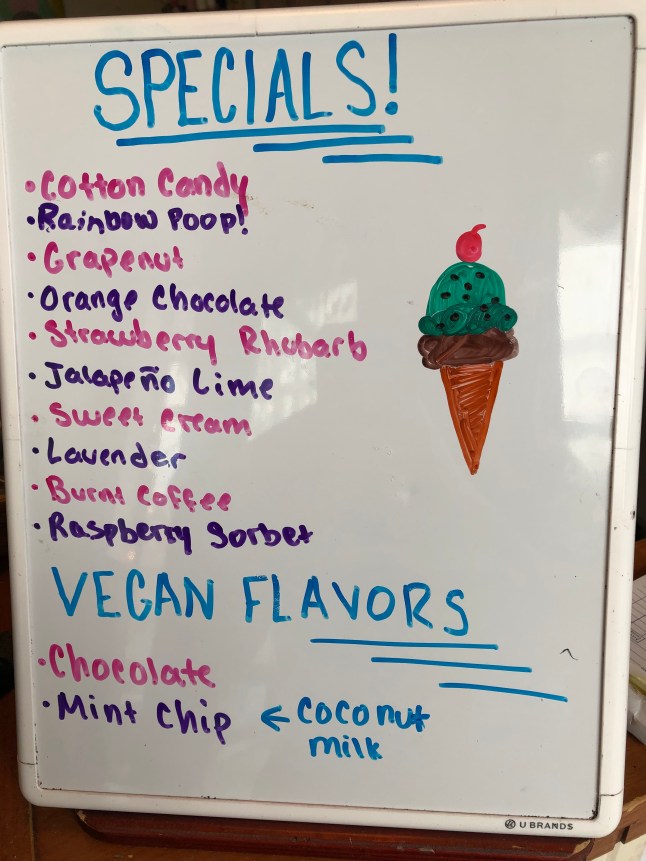 SPECIALS!
• Cotton Candy
• Rainbow Poop!
• Grapenut
• Orange Chocolate
• Strawberry Rhubarb
• Jalapeño Lime
• Sweet Cream
• Lavender
• Burnt Coffee
• Raspberry Sorbet
VEGAN FLAVORS
• Chocolate
• Mint Chip ← Coconut
milk
U BRANDS